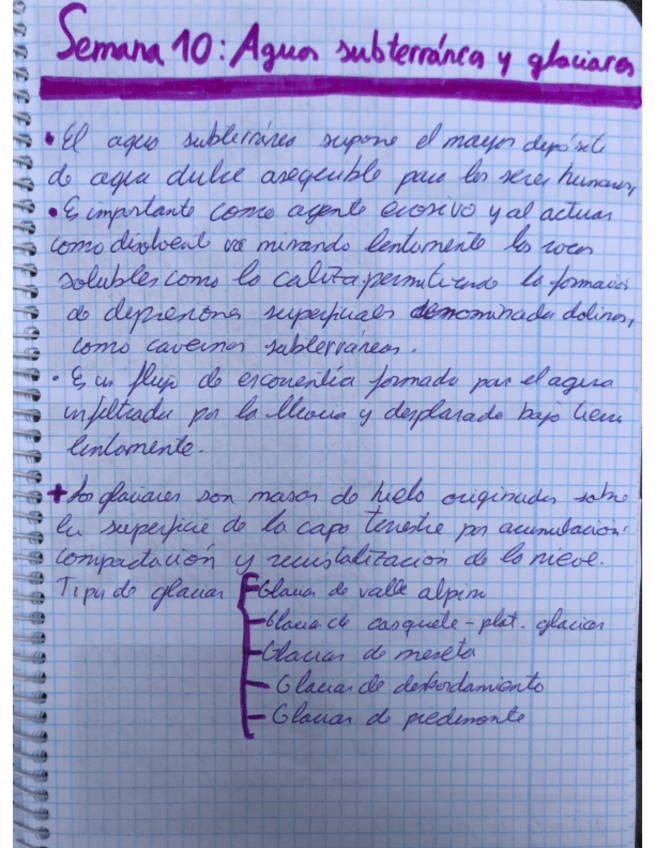 Semana 10: Aguas subterránea y glaciares
• El agua subterránea supone el mayor depósito
de agua dulce asequible para los seres humanos,
• Es importante como agente erosivo y al actuar
como disolvente va minando lentamente las rocas
solubles como la caliza permitiendo la formación
de depresiones superficiales denominadas dolinas,
como cavernas subterráneas.
• Es un flujo de escorrentía formado por el agua
infiltrada por la lluvia y desplazada bajo tierra
lentamente.
+ Los glaciares son masas de hielo originadas sobre
la superficie de la capa terrestre por acumulación,
compactación y recristalización de la nieve.
Tipos de glaciar
Glaciar de valle alpino
- Glaciar de casquete - plat. glaciar
- Glaciar de meseta
- Glaciar de desbordamiento
- Glaciar de piedemonte